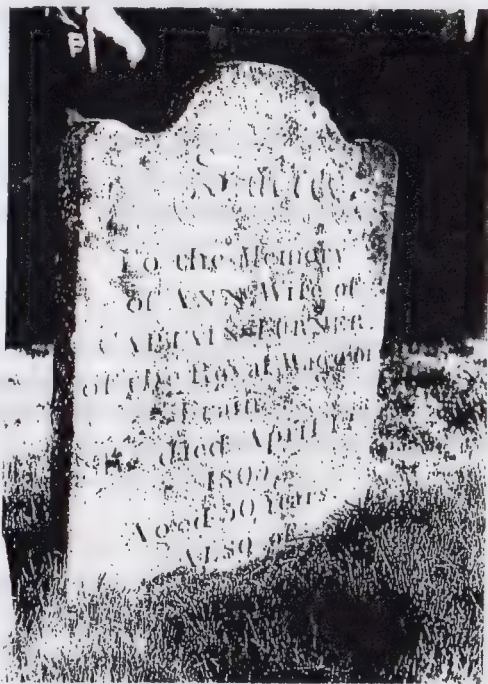 Sacred
To the Memory
of ANN Wife of
CAPTAIN TURNER
of the Royal Waggon
Train
She died April
180
Aged 50 Years
ALSO of